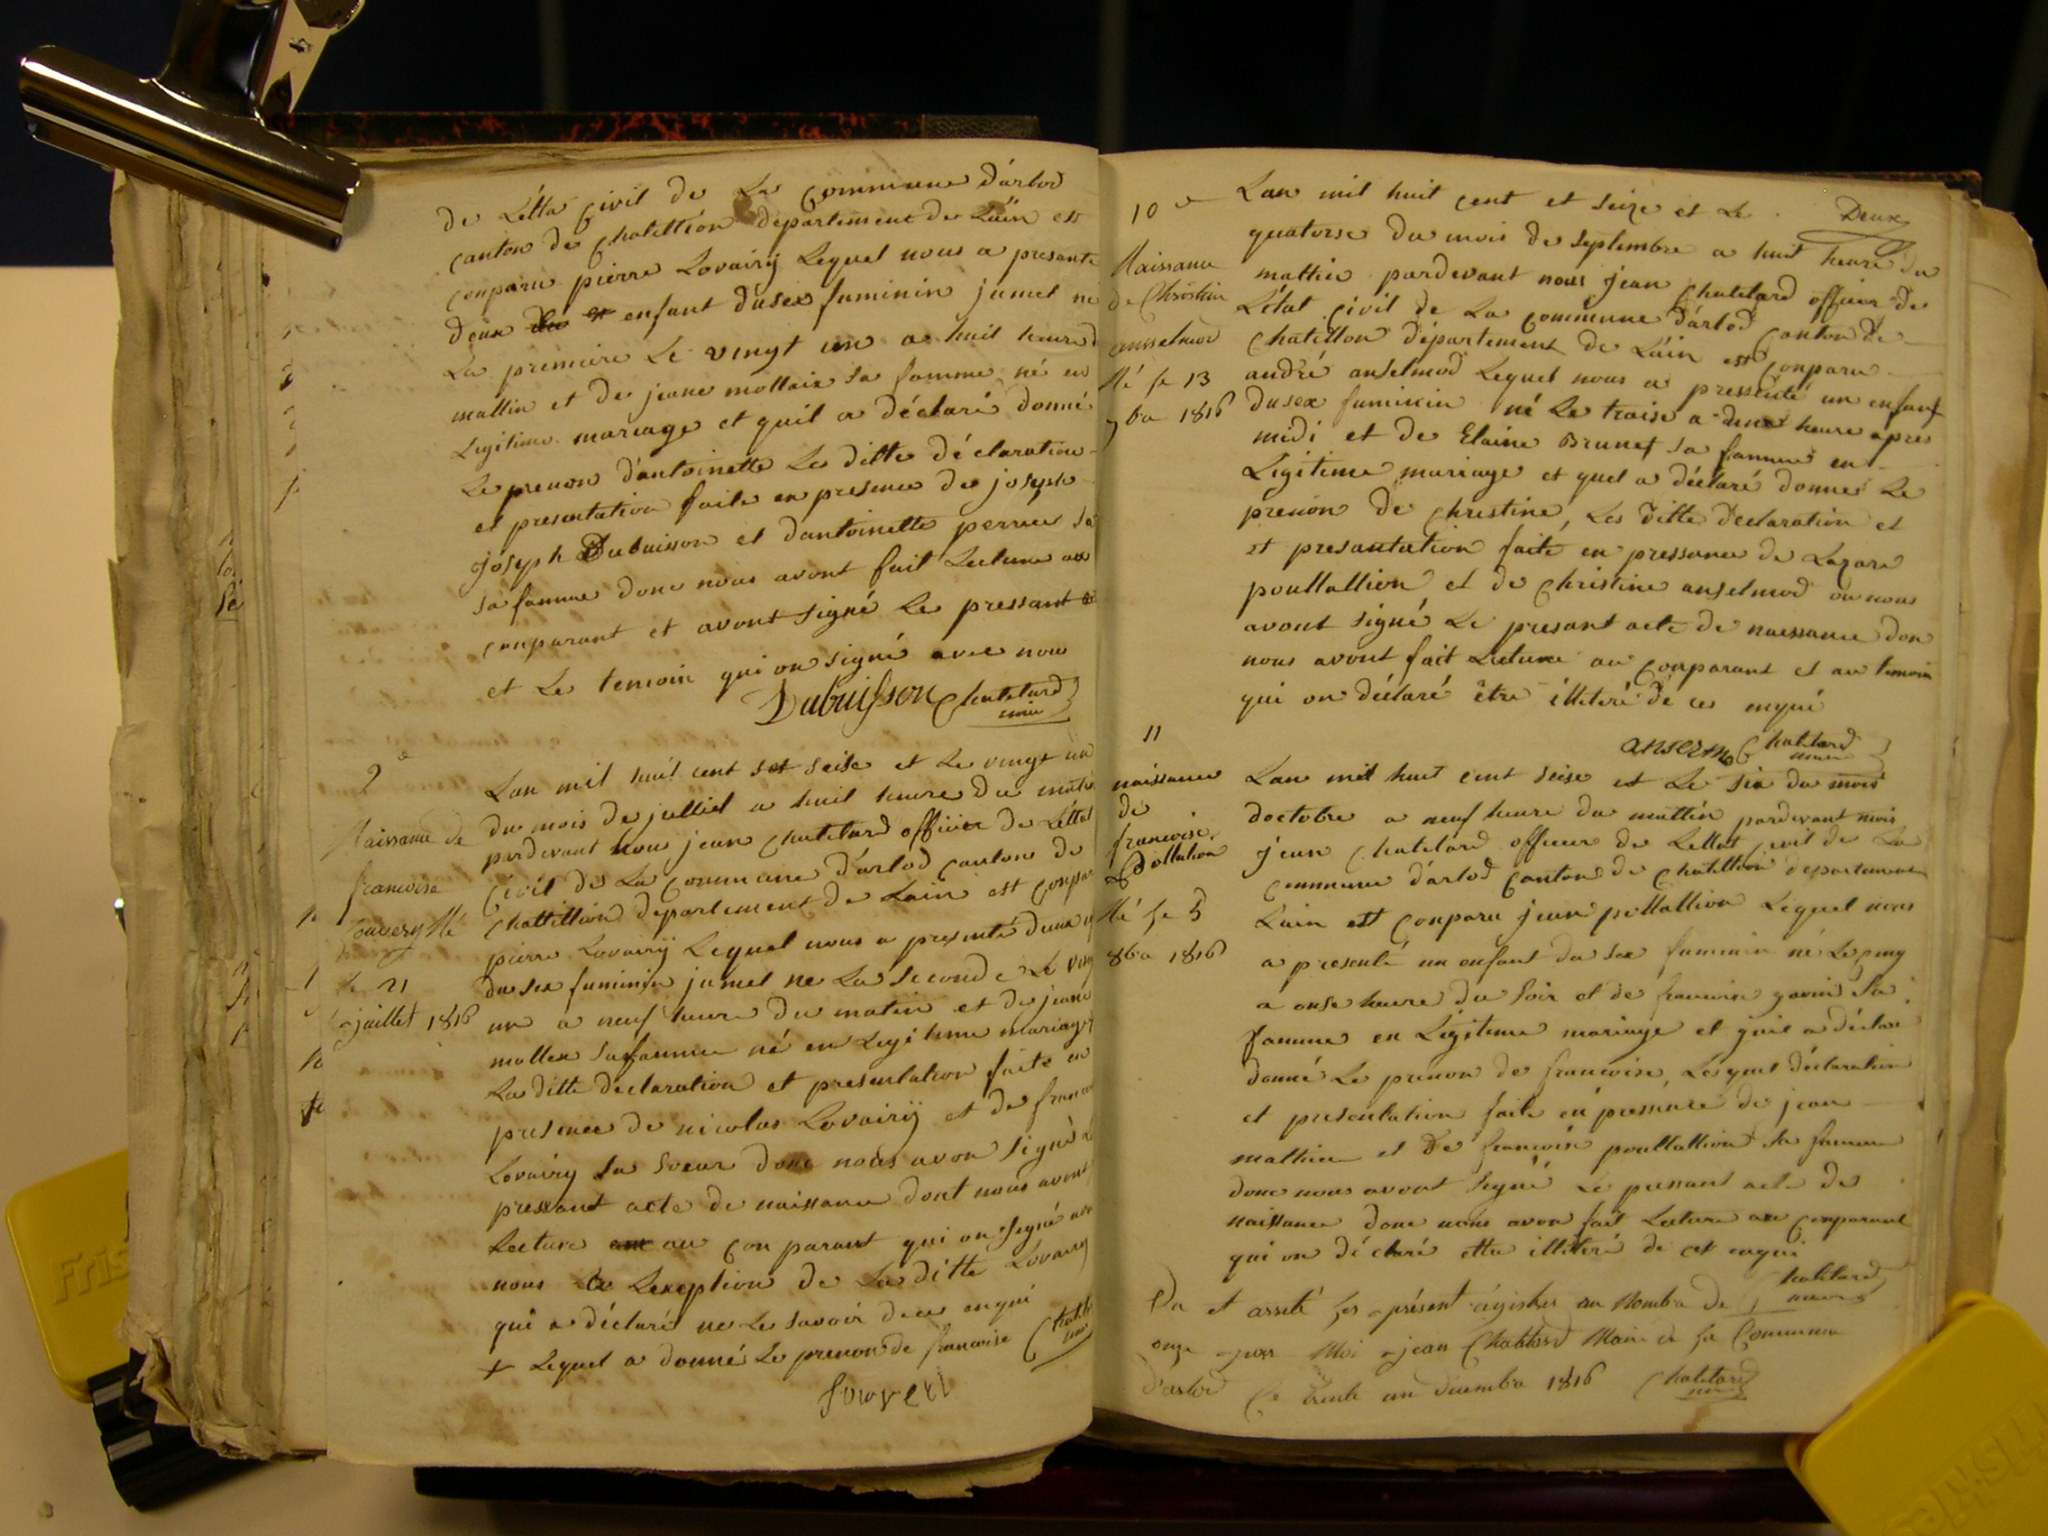 de Létta Civil de La Commune d'arlod
canton de Chatillion département de Laïn est
conparu pierre Lovairÿ Lequel nous a presanté
deux enfant du sex faminin jumel né
La premiere Le vingt un a huit heure d
mattin et de jeane mollair sa famme né en
Legitime mariage et quil a déclaré donné
Le prenon d'antoinette Les ditte déclaration
et presentation faite en presence de joseph
joseph Dubuisson et d'antoinette perrue sa
sa famme donc nous avont fait Lecture au
conparant et avont signé Le pressant
et Le temoin qui on signé avec nou
Dubuisson Chatelard
maire
9e
Naissance de
francoise
Louvery Né
le 21
juillet 1816
Lan mil huit cent set seise et Le vingt un
du mois de julliet a huit heure du matin
pardevant Nous jean Chatelard officier de Léttat
Civil de La Commune d'arlod canton de
Chattillion departement de Lain est conpar
pierre Lovairÿ Lequel nous a presenté deux
du sex faminin jumel ne La seconde Le ving
un a neuf heure du matin et de jeane
mollex sa famme né en Legitime mariage
La ditte déclaration et presentation faite en
presence de nicolas Lovairÿ et de francoi
Lovairy sa sœur donc nous avon signé L
pressant acte de naissance dont nous avont
Lecture au conparant qui on signé av
nous a Lexeption de La ditte Lovairy
qui a déclaré ne Le savoir de ce enqui
+ Lequel a donné Le prenon de francoise Chatel
10e
Naissance
de Christine
ansselmod
Né Le 13
7bre 1816
Deux
Lan mil huit cent et seize et Le
quatorse du mois de septembre a huit heure du
mattin pardevant nous jean Chatelard officier de
Létat Civil de La commune d'arlod Canton de
Chatillon département de Lain est conparu
andré anselmod Lequel nous a pressenté un enfant
du sex faminin né Le traise a deux heure apres
midi et de Elaine Brunet sa famme en
Légitime mariage et quel a déclaré donner Le
prenon de Christine, Les ditte declaration et
et presantation faite en pressance de Lazare
poullattion et de Christine anselmod ou nous
avont signé Le presant acte de naissance don
nous avont fait Lecture au conparant et au temoin
qui on déclaré être illiteré de ces enqui
anselmo Chatelard
maire
11
naissance
de
francoise
Pollation
Né Le 5
8bre 1816
Lan mil huit cent seise et Le six du mois
doctobre a neuf heure du mattin pardevant nous
jean Chatelard officier de Lettat Civil de La
commune d'arlod Canton de Chatillon departement
Lain est conparu jean pollattion Lequel nous
a presenté un enfant du sex faminin né Le cinq
a onse heure du soir et de francoise gonin sa
famme en Légitime mariage et quil a déclar
donné Le prenon de francoise, Lesquel déclaration
et presentation faite en pressence de jean
mathieu et de francoise poullattion sa famme
donc nous avont signé Le pressant acte de
naissance donc nous avon fait Lecture au conparant
qui on déclaré ettre illiteré de cet enqui
Chatelard
maire
Vu et arreté Les présent régistre au Nombre de
onze par Moi jean Chatelard Maire de la Commune
d'arlod Le trente un decembre 1816 Chatelard
maire